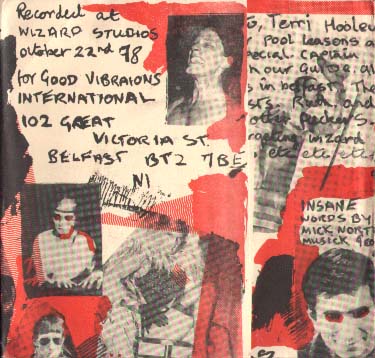 Recorded at
WIZARD STUDIOS
October 22nd 78
for GOOD VIBRAIONS
INTERNATIONAL
102 GREAT
VICTORIA ST.
BELFAST BT2 7BE
NI
G, Terri Hooley
Pool leasons a
ecial Captain
our Guide, al
s in belfast, The
sts. Ruth, and
other Fuckers.
wizard
, etc etc, etc
INSANE
WORDS BY
MICK NORT
MUSICK